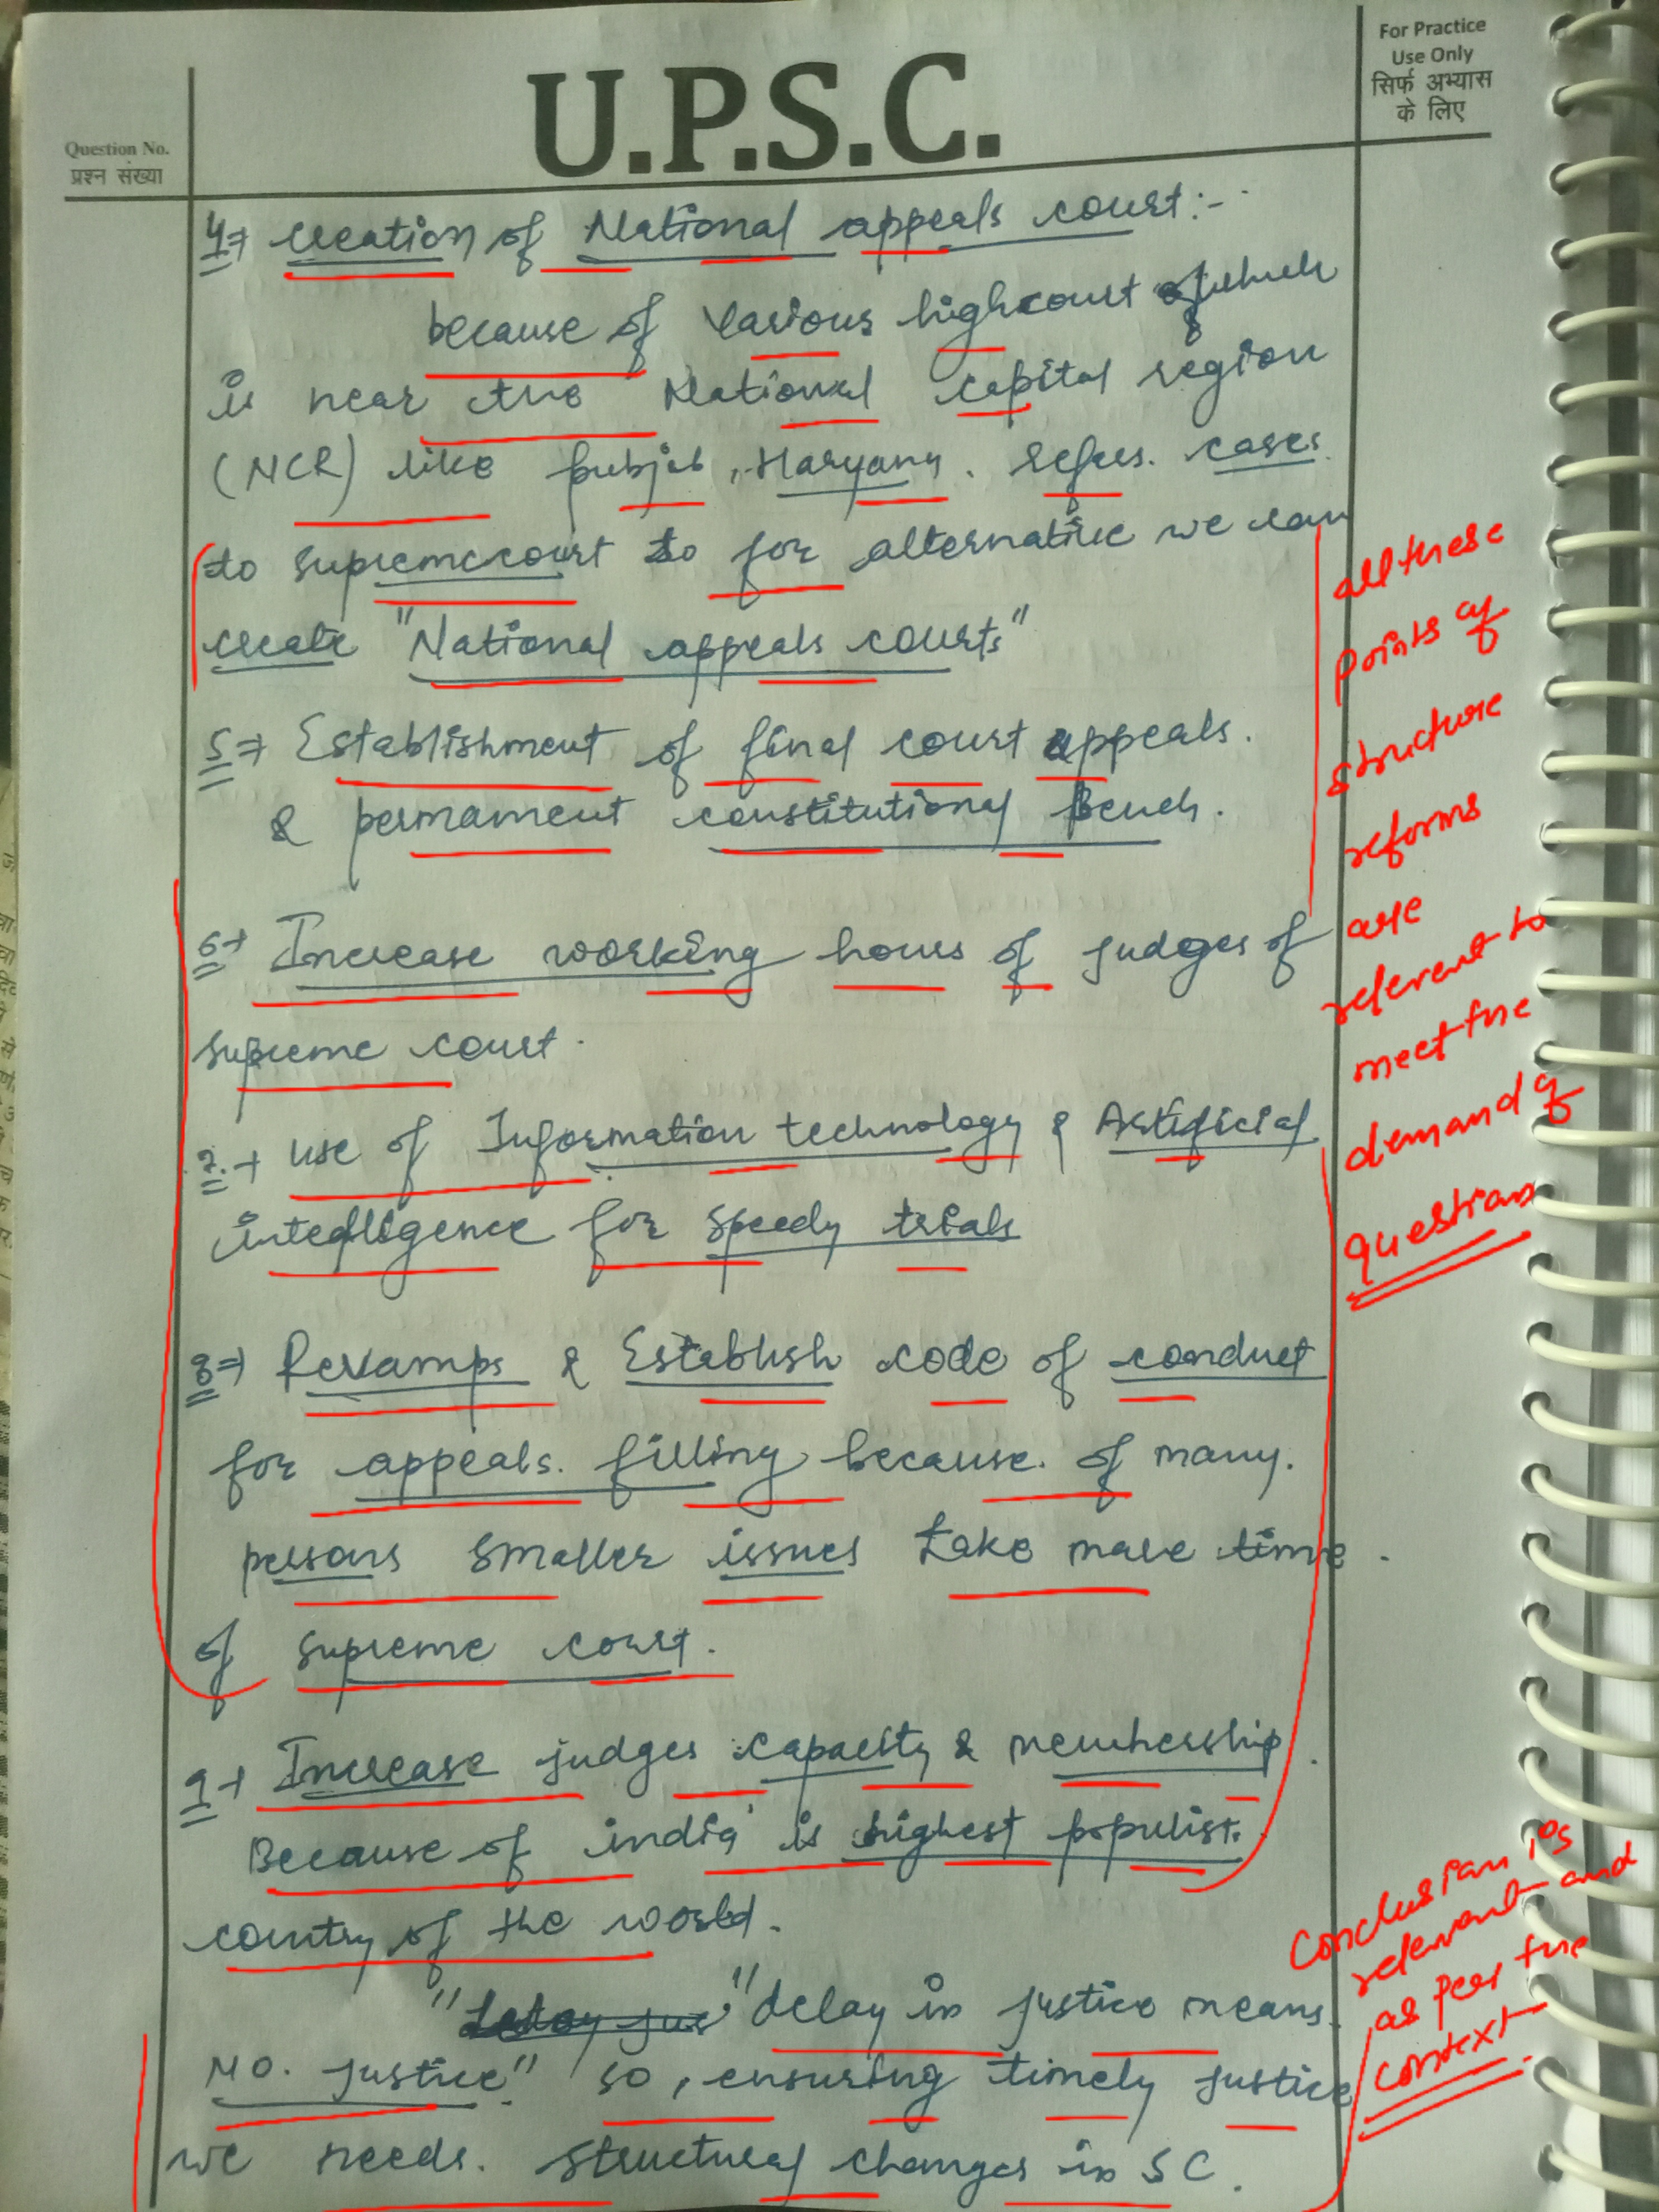 For Practice
Use Only
सिर्फ अभ्यास
के लिए
U.P.S.C.
Question No.
प्रश्न संख्या
4⇒ creation of National appeals court:-
because of various highcourt of which
is near the National capital region
(NCR) like punjab, Haryana. refers. cases
to supremecourt to for alternative we can
create "National appeals courts"
5⇒ Establishment of final court appeals.
& permament constitutional Bench.
6→ Increase working hours of judges of
supreme court.
7.→ use of Information technology & Artificial
intelligence for speedy trials
8⇒ Revamps & Establish code of conduct
for appeals. filling because. of many.
persons smaller issues take more time.
of supreme court.
9→ Increase judges capacity & membership.
Because of india is highest populist.
country of the world.
"delay in justice means.
NO. justice" so, ensuring timely justice
we needs. structural changes in SC.
all these
points of
structure
reforms
are
relevent to
meet the
demand of
questions
Conclusion is
relevant and
as per the
context